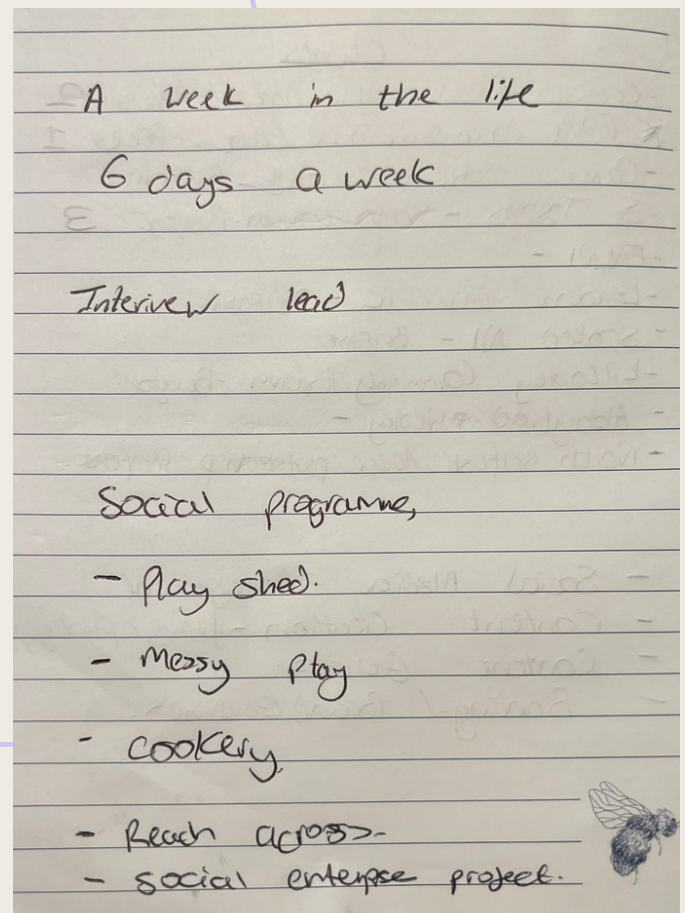 A week in the life
6 days a week
Interivew lead
Social programme,
- Play shed.
- Messy play
- Cookery,
- Reach across-
- social enterpse project.